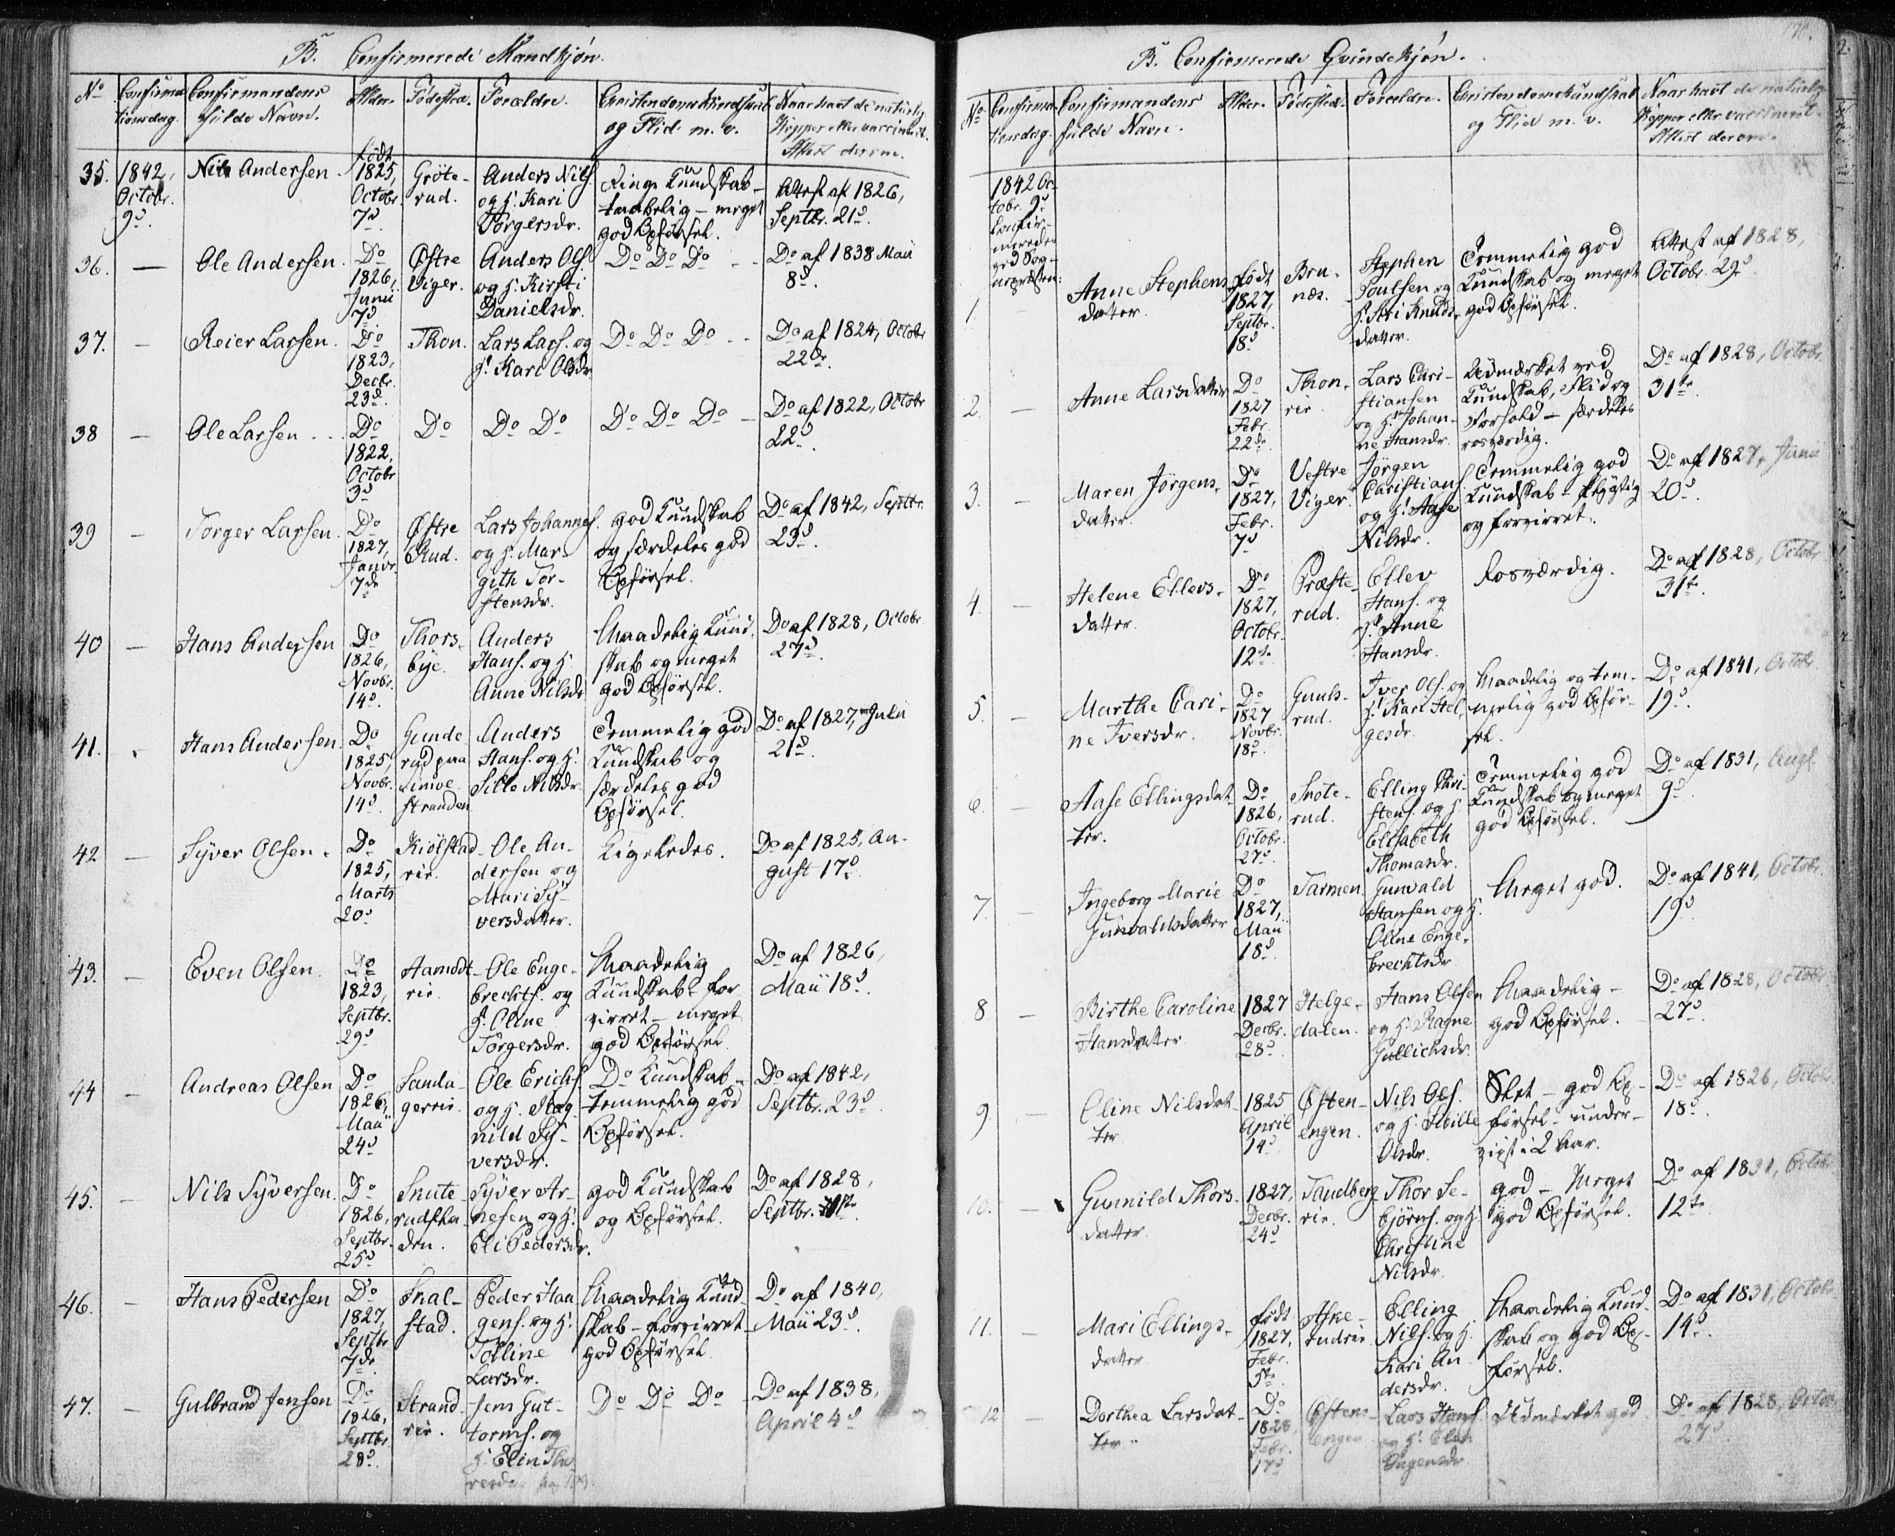 B. Confirmerede Mandkjøn.
No Confirmationsdag. Confirmandens fulde Navn. Alder. Fødested. Forældre. Christendoms Kundskab og Flid m. v. Naar havt de naturlig Kopper eller vaccineret. Attest derom.
35. 1842, Octobr. 9d. Nils Andersen. født 1825, Octobr. 7d Gröterud. Anders Nils. og H. Kari Torgersdr. Ringe Kundskab taabelig - meget god Opførsel. Attest af 1826, Septbr. 21d.
36. — Ole Andersen. Do 1826, Junii 7d Østre Viger. Anders Ols. og H. Kirsti Danielsdr. Do Do Do Do af 1838 Maii 8d.
37. — Reier Larsen. Do 1823, Decbr. 23d. Thon. Lars Lars. og H. Kari Olsdr. Do Do Do Do af 1824, Octobr 22de.
38 — Ole Larsen. Do 1822, Octobr 3d Do Do Do Do Do Do Do af 1822, Octobr 22d.
39 — Torger Larsen. Do 1827, Januar 7de Østre Rud. Lars Johannes. og H. Margith Torstensdr. god Kundskab og særdeles god Opførsel. Do af 1842, Septbr. 23d.
40 — Hans Andersen Do 1826, Novbr. 14d. Thorsbye. Anders Hans. og H. Anne Nilsdr. Maadelig Kundskab og meget god Opførsel. Do af 1828, Octobr 27d.
41. Hans Andersen. Do 1825, Novbr. 14d. Gunderud paa stranden Anders Hans. og H. Sille Nilsdr. Temmelig god Kundskab og særdeles god Opførsel. Do af 1827, Julii 21d.
42 — Syver Olsen. Do 1825, Marts 20d Kiölstadrie. Ole Andersen og Mari Syversdatter. Ligeledes. Do af 1825, August 17d.
43. — Even Olsen. Do 1823, Septbr. 29d Aamodtrie. Ole Engebrechts. og H. Oline Torgersdr. Maadelig Kundskab forvirret - meget god Opførsel. Do af 1826, Maii 18d.
44 — Andreas Olsen Do 1826, Maii 24d Sandagerrie. Ole Erichs. og H. Ragnild Syversdr. Do Kundskab temmelig god Opførsel. Do af 1842, Septbr. 23d.
45. — Nils Syversen. Do 1826, Septbr. 25d Snuterudsladen. Syver Arnesen og H. Eli Pedersdr. god Kundskab og Opførsel. Do af 1828, Septbr.
46. — Hans Pedersen Do 1827, Septbr 7de. Snalstad. Peder Haagens. og H. Tolline Larsdr. Maadelig Kundskab - forvirret god Opførsel. Do af 1840, Maii 23d.
47. — Gulbrand Jensen Do 1826, Septbr 28d. Strandrie. Jens Guttorms. og H. Elin Do Do Do Do af 1838, April 4d
B. Confirmerede Qvindekjøn.
No Confirmationsdag. Confirmandens fulde Navn. Alder. Fødested. Forældre. Christendoms Kundskab og Flid m. v. Naar havt de naturlig Kopper eller vaccineret. Attest derom.
1842 Octobr. 9d
1 Anne Stephensdatter. født 1827, Septbr. 18d Brunæs. Stephen Poulsen og H. Siri Knudsdatter. Temmelig god Kundskab og meget god Opførsel. Attest af 1828, Octobr. 29d.
2. — Anne Larsdatter Do 1827 Febr. 22de. Thonrie. Lars Christiansen og H. Johanne Hansdr. Udmærket ved Kundskab, Flid og Forhold - særdeles rosværdig. Do af 1828, Octobr. 31te.
3. — Maren Jørgensdatter. Do 1827, Febr. 7d Vestre Viger. Jørgen Christians. og H. Aase Nilsdr. Temmelig god Kundskab - flygtig og forvirret. Do af 1827, Junii 20d.
4. — Helene Ellevsdatter. Do 1827, Octobr. 12te. Præsterud. Ellev Hans. og H. Anne Hansdr. Rosværdig. Do af 1828, Octobr. 31te.
5. — Marthe Carine Iversdr. Do 1827 Novbr. 18d. Guulsrud. Iver Ols. og H. Kari Helgesdr. Maadelig og temmelig god Opførsel. Do af 1841, Octobr. 19d.
6. — Aase Ellingsdatter. Do 1826, Octobr. 27d. Snoterud. Elling Christens. og H. Elisabeth Thomasdr. Temmelig god Kundskab og meget god Opførsel. Do af 1831, Augs. 9d.
7. — Ingeborg Marie Gunvaldsdatter Do 1827, Maii 18d. Tarmen Gunvald Hansen og H. Oline Engebrechtsdr. Meget god. Do af 1841, Octobr. 19d
8 — Birthe Caroline Hansdatter 1827 Decbr. 28d. Helgedalen. Hans Olsen og H. Ragne Gullichsdr. Maadelig - god Opførsel. Do af 1828, Octobr 27d.
9. — Eline Nilsdatter 1825 April 14d. Østenengen. Nils Ols. og H. Olsdr. Slet - god Opførsel - underviist i 2 Aar. Do af 1826, Octobr 18d.
10. — Gunnild Thorsdatter. 1827, Decbr. 24d Sandbergrie. Thor Tebjörns. og H. Christine Nilsdr. god - Meget god Opførsel. Do af 1831, Octobr 12te.
11. — Mari Ellingsdatter. født 1827, Febr. 5te. Askerudrie Elling Nils. og H. Kari Andersdr. Maadelig Kundskab og god Opførsel. Do af 1831, Octobr. 14d.
12 — Dorthea Larsdatter. Do 1828, Febr. 17d Østenengen Lars Hans. og H. Udmærket god Do af 1828, Octobr 27d